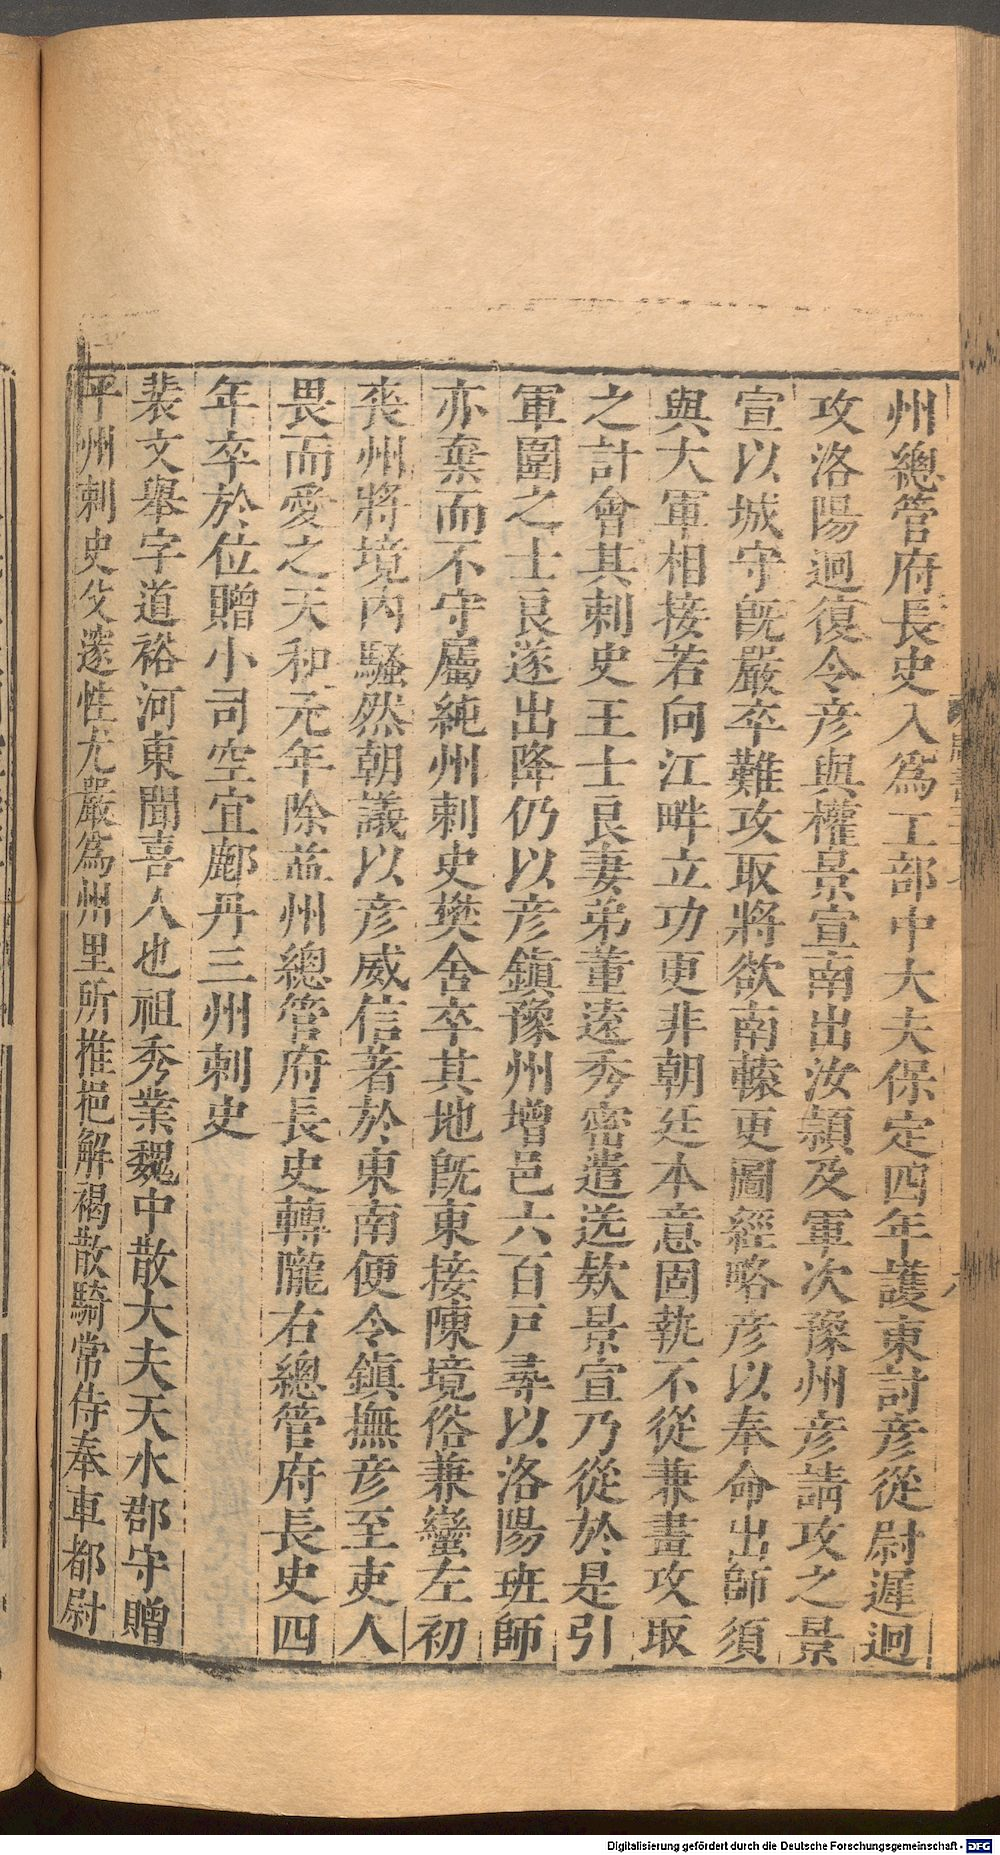 州總管府長史入爲工部中大夫保定四年護東討彦從尉遲迥
攻洛陽迥復令彦與權景宣南出汝潁及軍次豫州彦請攻之景
宣以城守既嚴卒難攻取將欲南轅更圖經略彦以奉命出師須
與大軍相接若向江畔立功更非朝廷本意固執不從兼畫攻取
之計會其刺史王士良妻弟董遠秀密遣送欵景宣乃從於是引
軍圍之士良遂出降仍以彦鎮豫州增邑六百戸尋以洛陽班師
亦棄而不守屬純州刺史樊舍卒其地既東接陳境俗兼蠻左初
喪州將境内騷然朝議以彦威信著於東南便令鎮撫彦至吏人
畏而愛之天和元年除益州總管府長史轉隴右總管府長史四
年卒於位贈小司空宜鄜丹三州刺史
裴文舉字道裕河東聞喜人也祖秀業魏中散大夫天水郡守贈
平州刺史父邃性尤嚴爲州里所推挹解褐散騎常侍奉車都尉
六
Digitalisierung gefördert durch die Deutsche Forschungsgemeinschaft - DFG